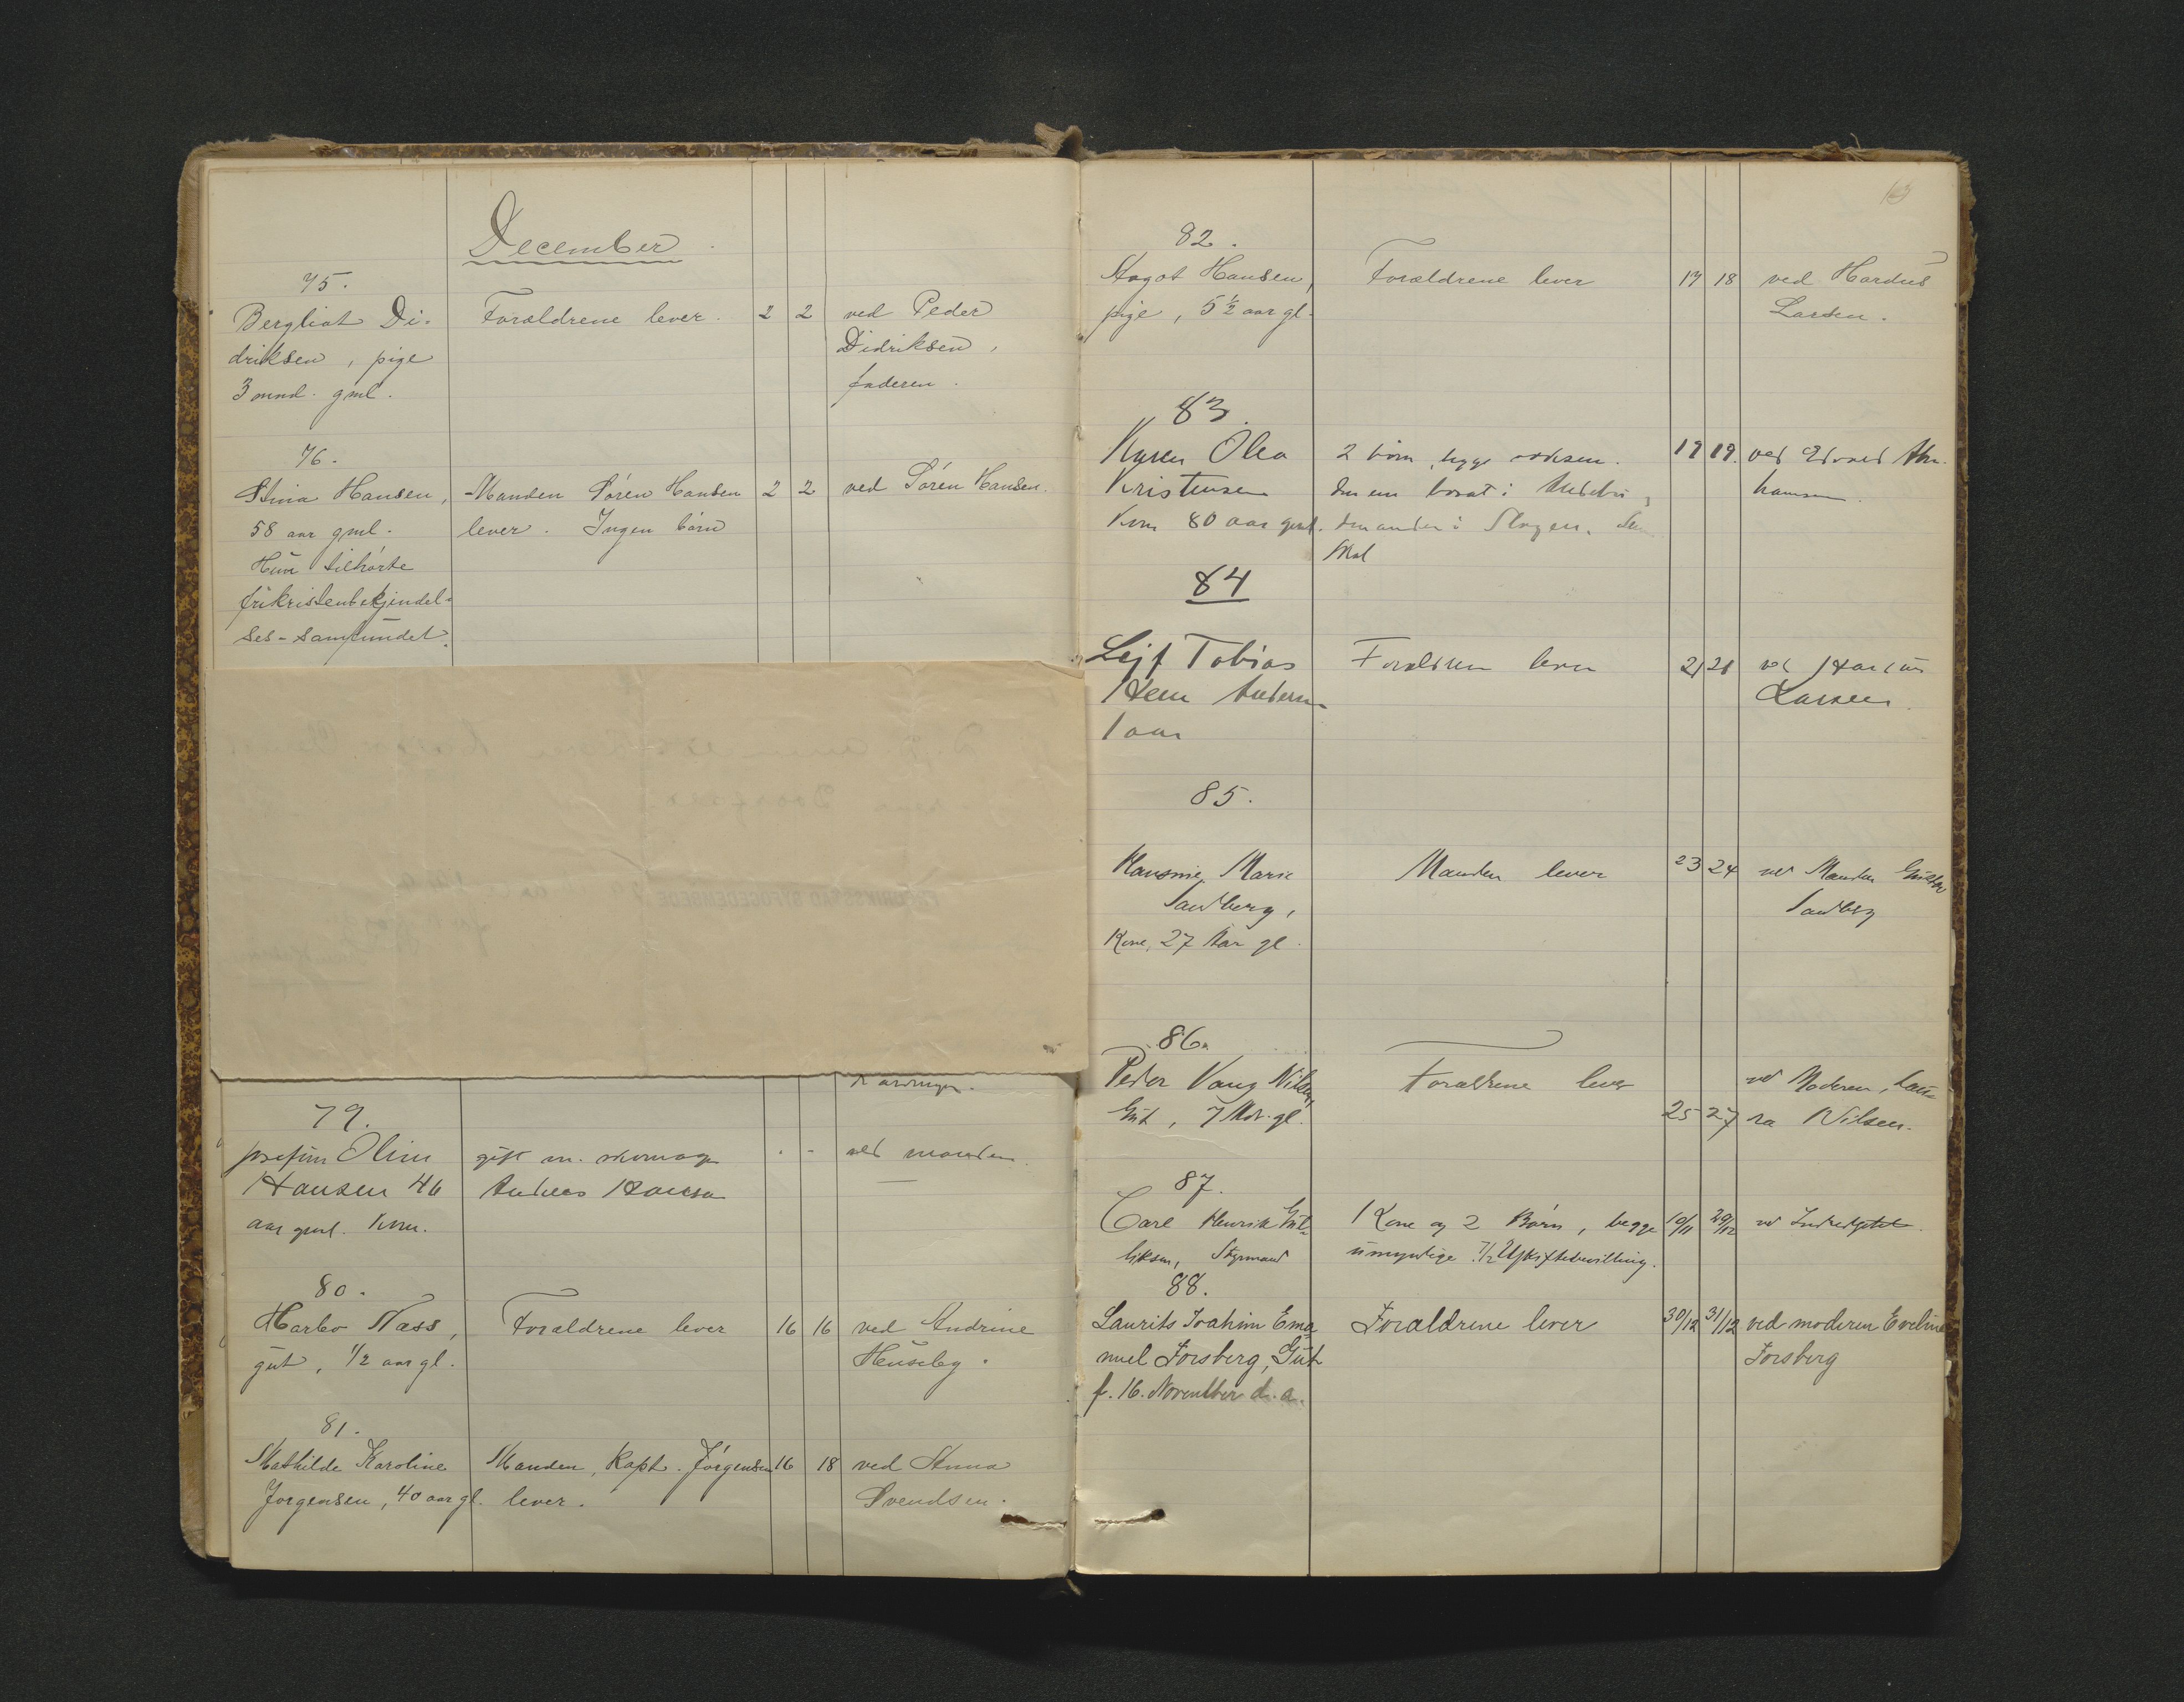 December
75.
Bergliot Di-
driksen, pige
3 mnd. gml.
Forældrene lever.
2 2
ved Peder
Didriksen,
faderen.
76.
Stina Hansen,
58 aar gml.
Hun tilhørte
frikristenbekjendel-
ses-samfundet.
Manden Søren Hansen
lever. Ingen børn
2 2
ved Søren Hansen.
79.
Josefine Oline
Hansen 46
aar gml. Kone.
gift m. skomager
Anders Hansen
ved manden.
80.
Harbo Næss,
gut, 1/2 aar gl.
Forældrene lever
16 16
ved Andrine
Huseby.
81.
Mathilde Karoline
Jørgensen, 40 aar gl.
Manden, Kapt. Jørgensen
lever.
16 18
ved Anna
Svendsen.
82.
Aagot Hansen,
pige, 5 1/2 aar gl.
Forældrene lever
17 18
ved Hardus
Larsen.
83.
Karen Olea
Kristensen
Kone 80 aar gml.
2 børn, begge voksen.
den ene bosat i
den anden i Slagen.
19 19.
ved Edvard Abra-
hamsen.
84
Lejf Tobias
Hem Andersen
1 aar
Forældrene lever
21 21
ved Hardus
Larsen.
85.
Hansine Marie
Sandberg,
Kone, 27 Aar gl.
Manden lever
23 24
ved Manden Gustav
Sandberg
86.
Peder Vang Nilsen,
Gut, 7 Mdr. gl.
Forældrene lever
25 27
ved Moderen, Lau-
ra Nilsen.
87.
Carl Henrik Gul-
liksen, Styrmand
1 Kone og 2 Børn, begge
umyndige. 7/2 Uskiftebevilling.
19/11 29/12
88.
Laurits Joahim Ema-
nuel Forsberg, Gut
f. 16. November d. a.
Forældrene lever
30/12 31/12
ved moderen Eveline
Forsberg